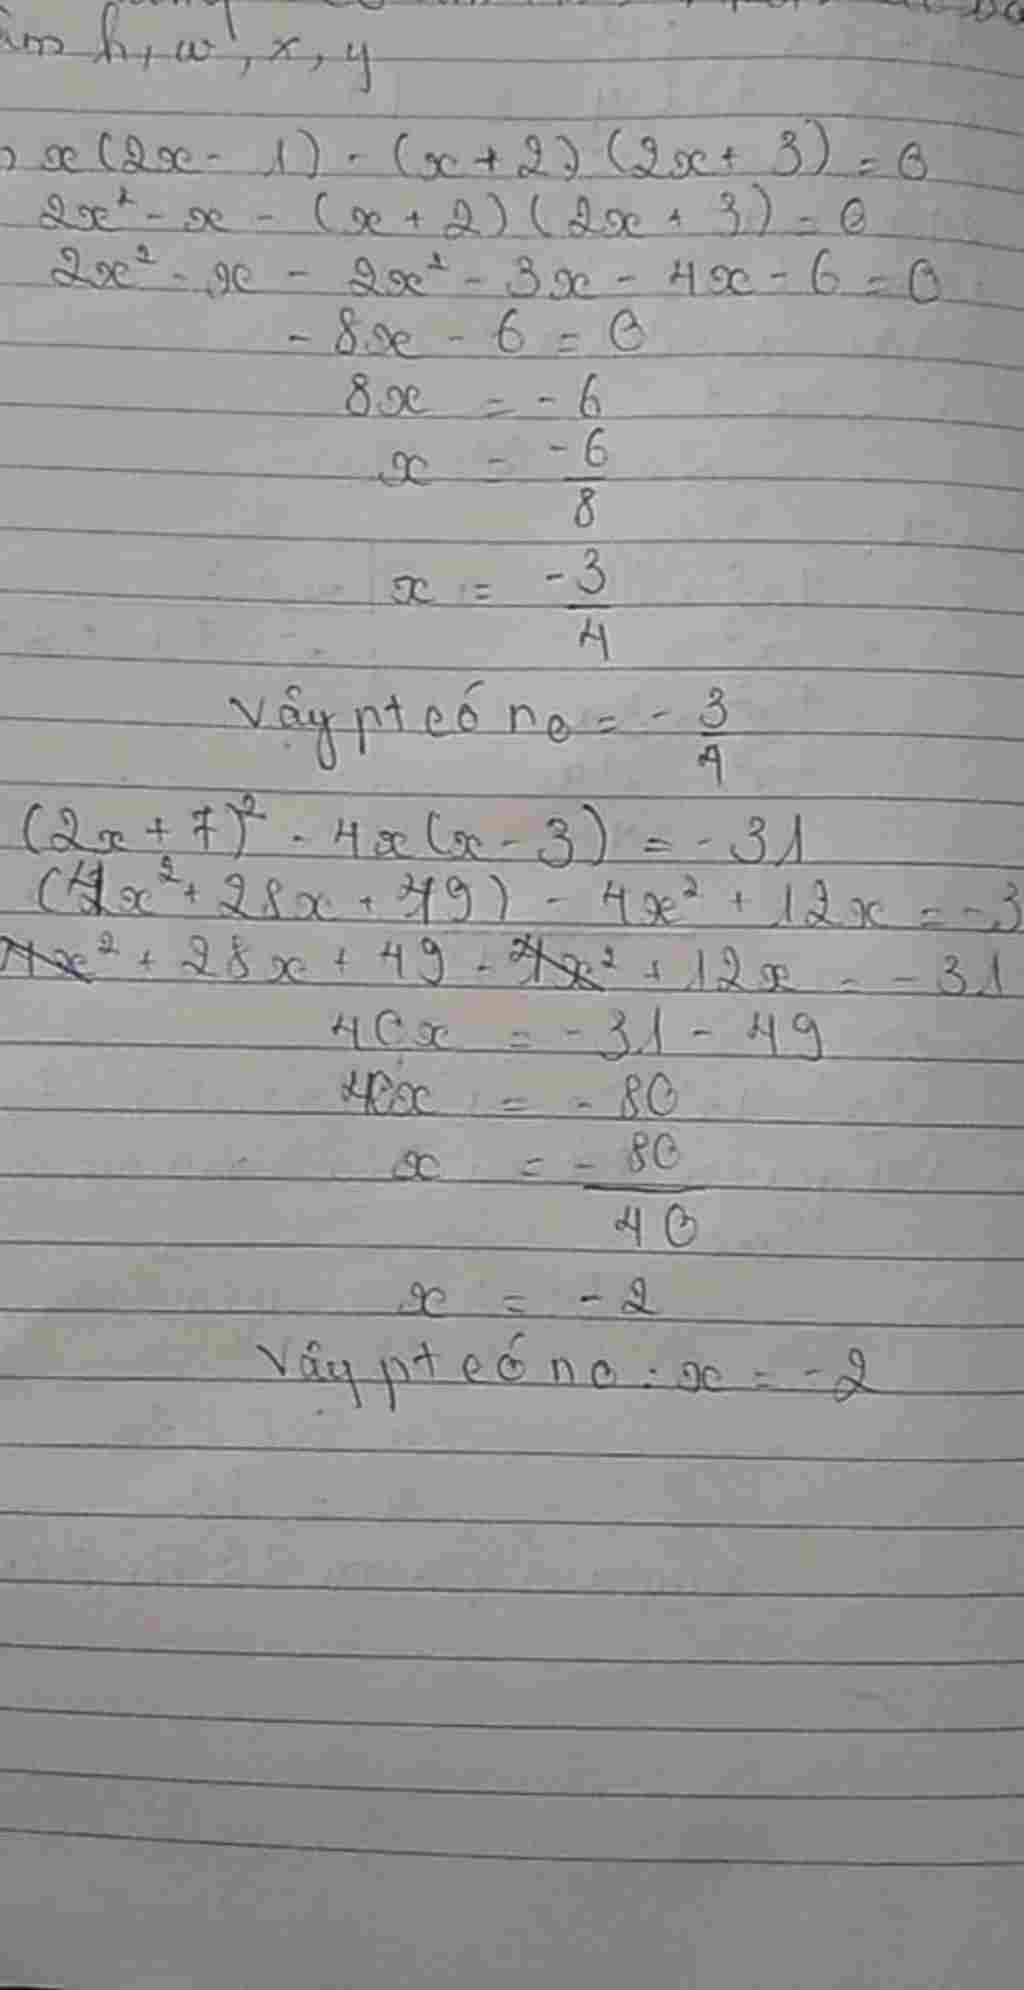 h, w, x, y
x(2x - 1) - (x + 2) (2x + 3) = 0
2x² - x - (x + 2) (2x + 3) = 0
2x² - x - 2x² - 3x - 4x - 6 = 0
- 8x - 6 = 0
8x = - 6
x = -6/8
x = -3/4
Vậy pt có no = - 3/4
(2x + 7)² - 4x(x - 3) = - 31
(4x² + 28x + 49) - 4x² + 12x = - 3
4x² + 28x + 49 - 4x² + 12x = - 31
40x = - 31 - 49
40x = - 80
x = - 80/40
x = - 2
Vậy pt có no : x = - 2